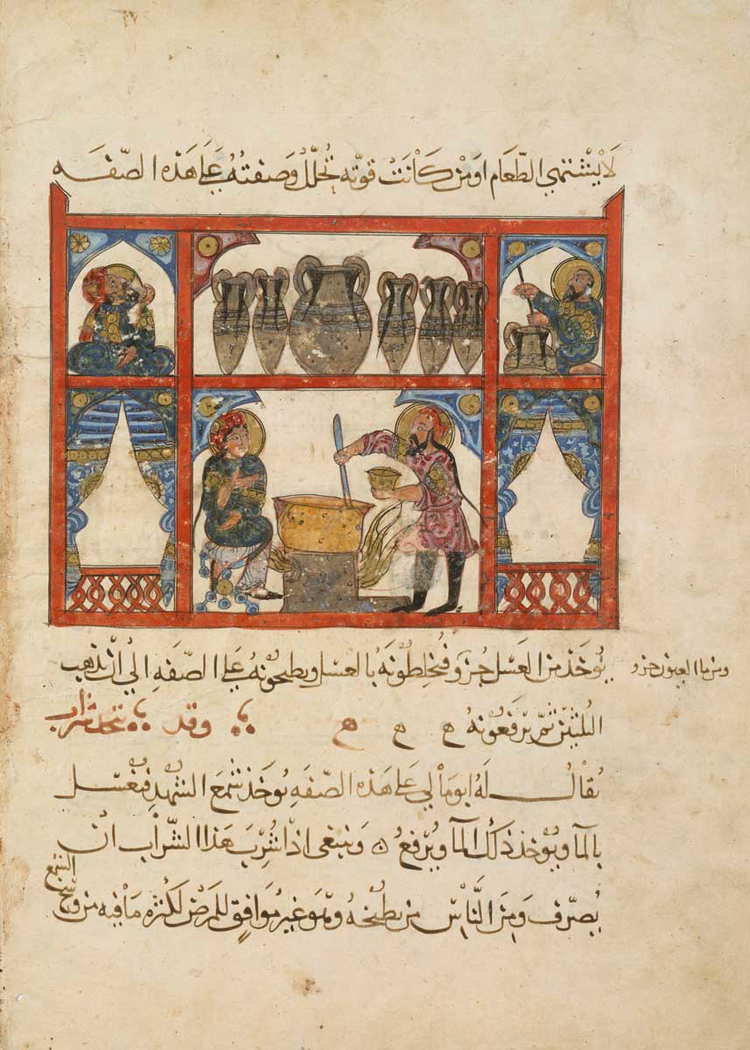 لا يشتهي الطعام او من كانت قوته تحلل وصفته على هذه الصفه
يوخذ من العسل جزو فيخلطونه بالعسل ويطبخونه على الصفه الى ان يذهب
ومن ما العيون جزو
الثلثين ثم يرفعونه وقد يتخذ شراب
يقال له ابومالي على هذه الصفه يوخذ شمع الشهد فيغسل
بالما ويوخذ ذلك الما ويرفع وينبغي اذا شرب هذا الشراب ان
يصرف ومن الناس من يطبخه وهو غير موافق للمرضى لكثره ما فيه من وسخ
الشمع